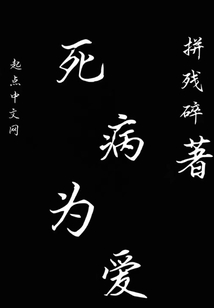 死病为爱
拼残碎著
起点中文网